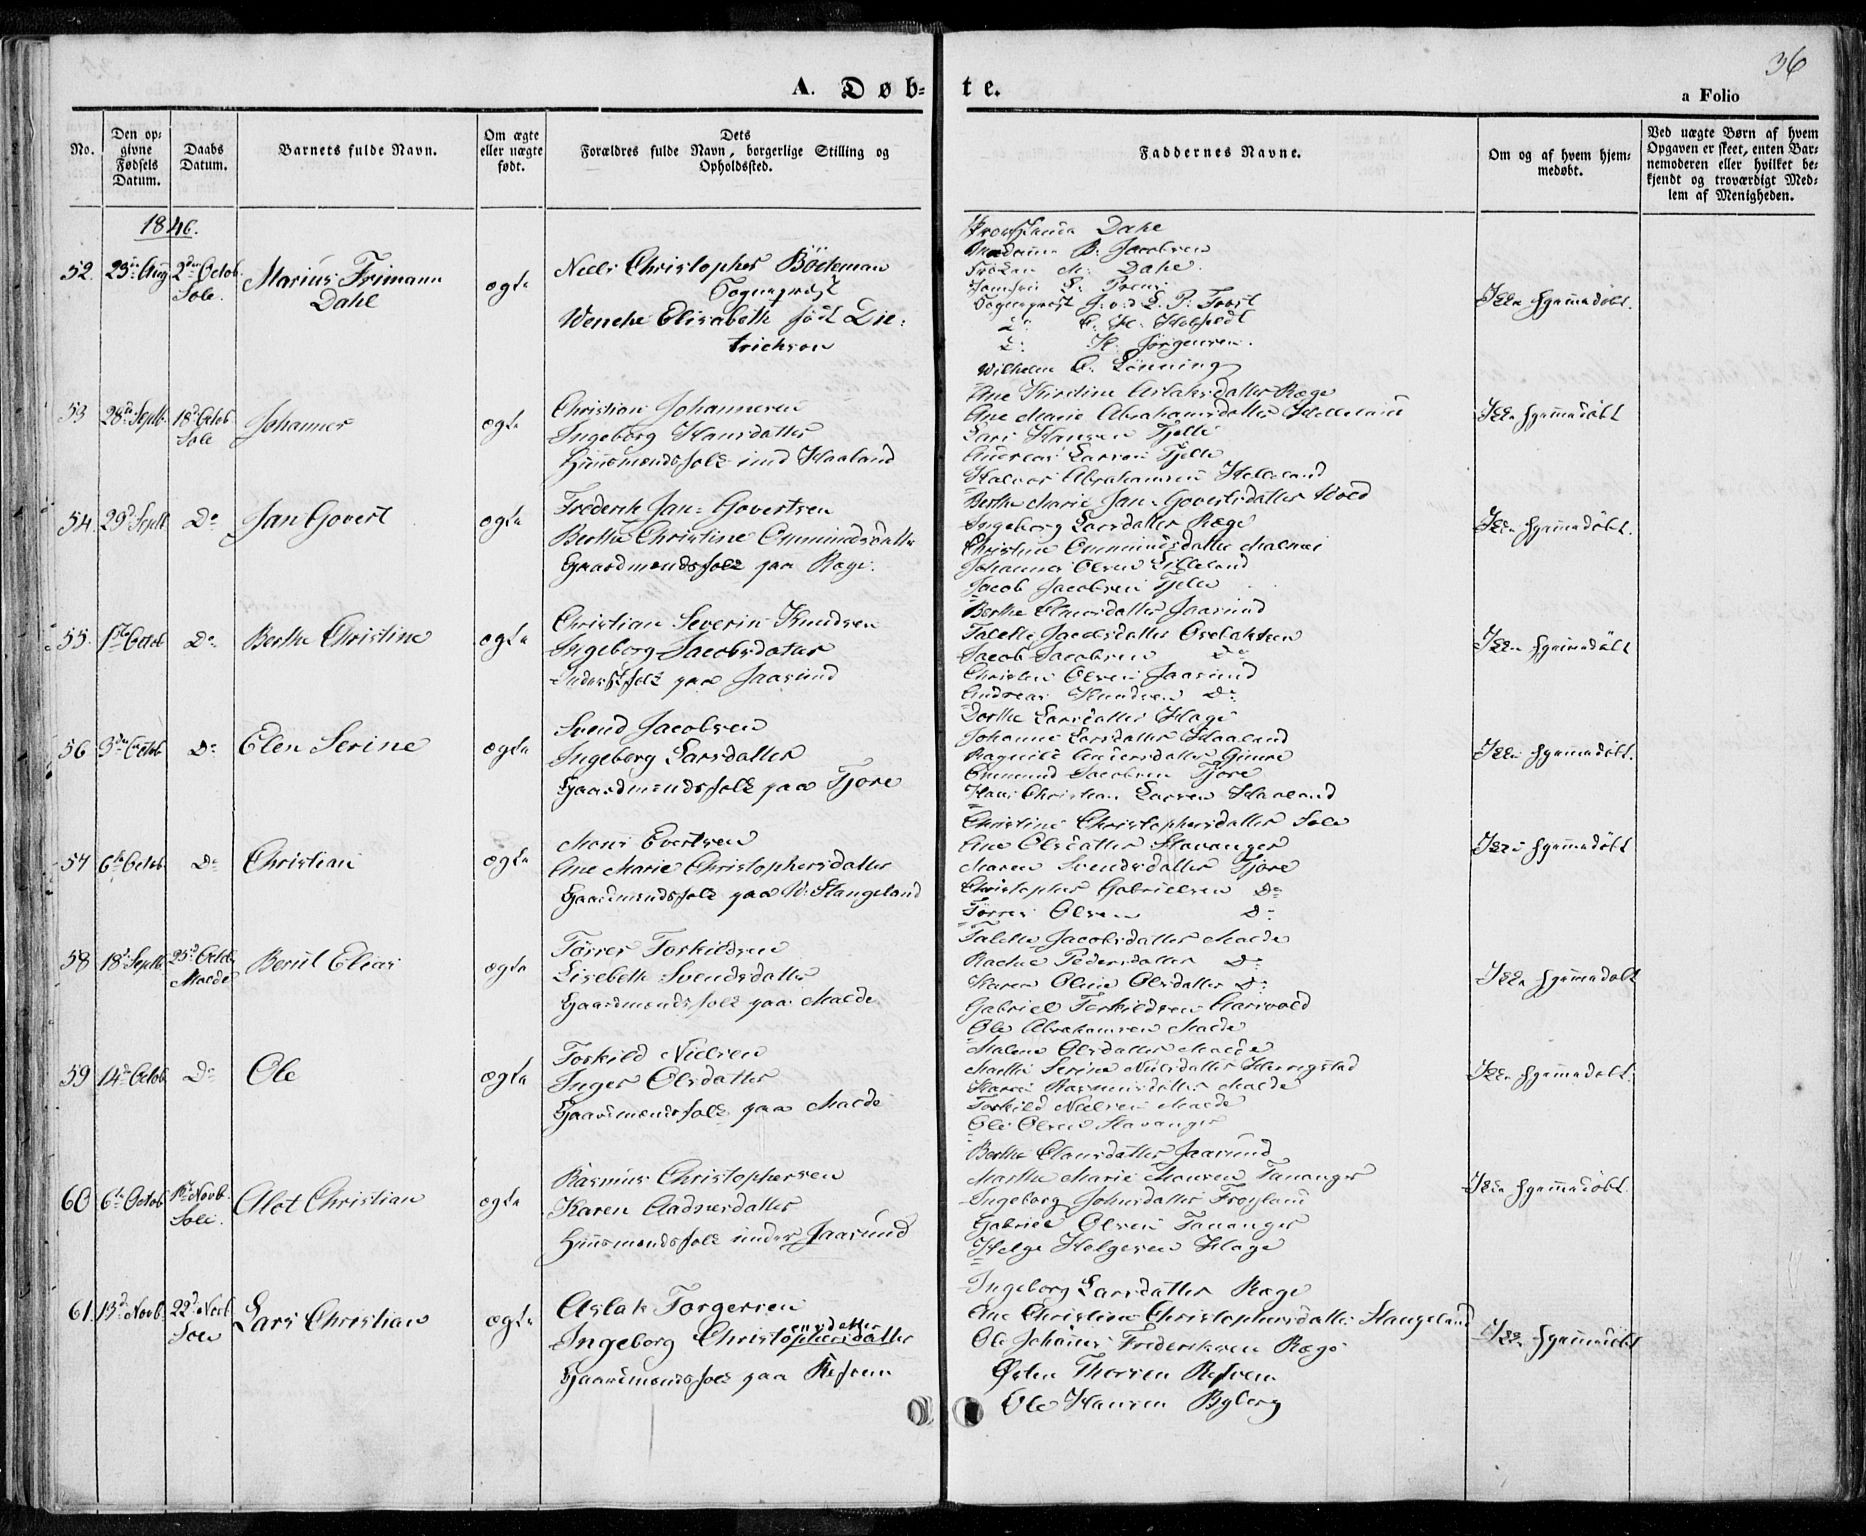 36
A. Døb-te.
a Folio
No.
Den op-
givne
Fødsels
Datum.
Daabs
Datum.
Barnets fulde Navn.
Om ægte
eller uægte
født.
Dets
Forældres fulde Navn, borgerlige Stilling og
Opholdssted.
Faddernes Navne.
Om og af hvem hjem-
medøbt.
Ved uægte Børn af hvem
Opgaven er skeet, enten Bar-
nemoderen eller hvilket be-
kjendt og troværdigt Med-
lem af Menigheden.
1846.
52. 23de Aug 2den Octob. Sole.
Marius Frimann
Dahl
ægte
Niels Christopher Bödtcman
Sogneprest
Wenche Elisabeth født Die-
trichson
Dahl
Madame B. Jacobsen
Frøken M. Dahl.
Jomfru L.
Sogneprest J. L. P.
Do
Do H. Jørgensen.
Wilhelm C. Lönning
Ikke hjemmedøbt.
53 28de Septb. 18de Octob Sole
Johannes
ægte
Christian Johannesen
Ingeborg Hansdatter
Huusmandsfolk und Haaland
Ane Kirstine Aslaksdatter Ræge
Ane Marie Abrahamsdatter Helleland
Lars Hansen Tjelle
Andreas Larsen Tjelle
Halvor Abrahamsen Helleland
Ikke hjemmedøbt
54. 29de Septb Do
Jan Govert
ægte
Frederik Jan-Govertsen
Berthe Christine Ommundsdatter
Gaardmandsfolk paa Ræge.
Berthe Marie Jan-Govertsdatter Wold
Ingeborg Larsdatter Ræge
Christine Ommundsdatter Malmei
Johannes Olsen Lilleland
Jacob Jacobsen Tjelle
Ikke hjemmedøbt.
55. 1ste Octob Do
Berthe Christine
ægte
Christian Severin Knudsen
Ingeborg Jacobsdatter
Inderstfolk paa Jaasund
Berthe Clausdatter Jaasund
Talette Jacobsdatter
Jacob Jacobsen Do
Christen Olsen Jaasund
Andreas Knudsen Do
Ikke hjemmedøbt
56 3die Octob Do
Elen Serine
ægte
Svend Jacobsen
Ingeborg Larsdatter
Gaardmandsfolk paa Tjore
Dorthe Larsdatter Hage
Johanne Larsdatter Haaland
Ragnild Andersdatter Gimre
Ommund Jacobsen Tjore
Hans Christian Larsen Haaland
Ikke hjemmedøbt.
57 6te Octob Do
Christian
ægte
Mons Evertsen
Ane Marie Christophersdatter
Gaardmandsfolk paa N: Stangeland
Christine Christophersdatter Sole
Ane Olsdatter Stavanger
Maren Svendsdatter Tjore
Christopher Gabrielsen Do
Tørres Olsen Do
Ikke hjemmedøbt
58 18de Septb 25de Octob. Malde
Berüt Elias
ægte
Tørres Torkildsen
Lisebeth Svendsdatter
Gaardmandsfolk paa Malde
Talette Jacobsdatter Malde
Rachel Pedersdatter Do
Karen Oline Olsdatter Do
Gabriel Torkildsen Harvold
Ole Abrahamsen Malde
Ikke hjemmedøbt
59 14de Octob. Do
Ole
ægte
Torkild Nielsen
Inger Olsdatter
Gaardmandsfolk paa Malde
Malene Olsdatter Malde
Marthe Serine Nielsdatter Herrigstad
Karen Rasmusdatter Malde
Torkild Nielsen Malde
Ole Olsen Stavanger
Ikke hjemmedøbt.
60 6te Octob 1ste Novb. Sole.
Olot Christian
ægte
Rasmus Christophersen
Karen Aadnesdatter
Huusmandsfolk under Jaasund
Berthe Clausdatter Jaasund
Marthe Marie Monsen Tananger
Ingeborg Johnsdatter Frøyland
Gabriel Olsen Tananger
Helge Helgesen Hage
Ikke hjemmedøbt.
61. 13de Novb. 22de Novb. Sole
Lars Christian
ægte
Aslak Torgersen
Ingeborg Christophersdatter
ensdatter
Gaardmandsfolk paa Refsnes
Ingeborg Larsdatter Ræge
Ane Christine Christophersdatter Stangeland
Ole Johannes Frederiksen Ræge
Østen Thorsen Refsnes
Ole Hansen Byberg
Ikke hjemmedøbt